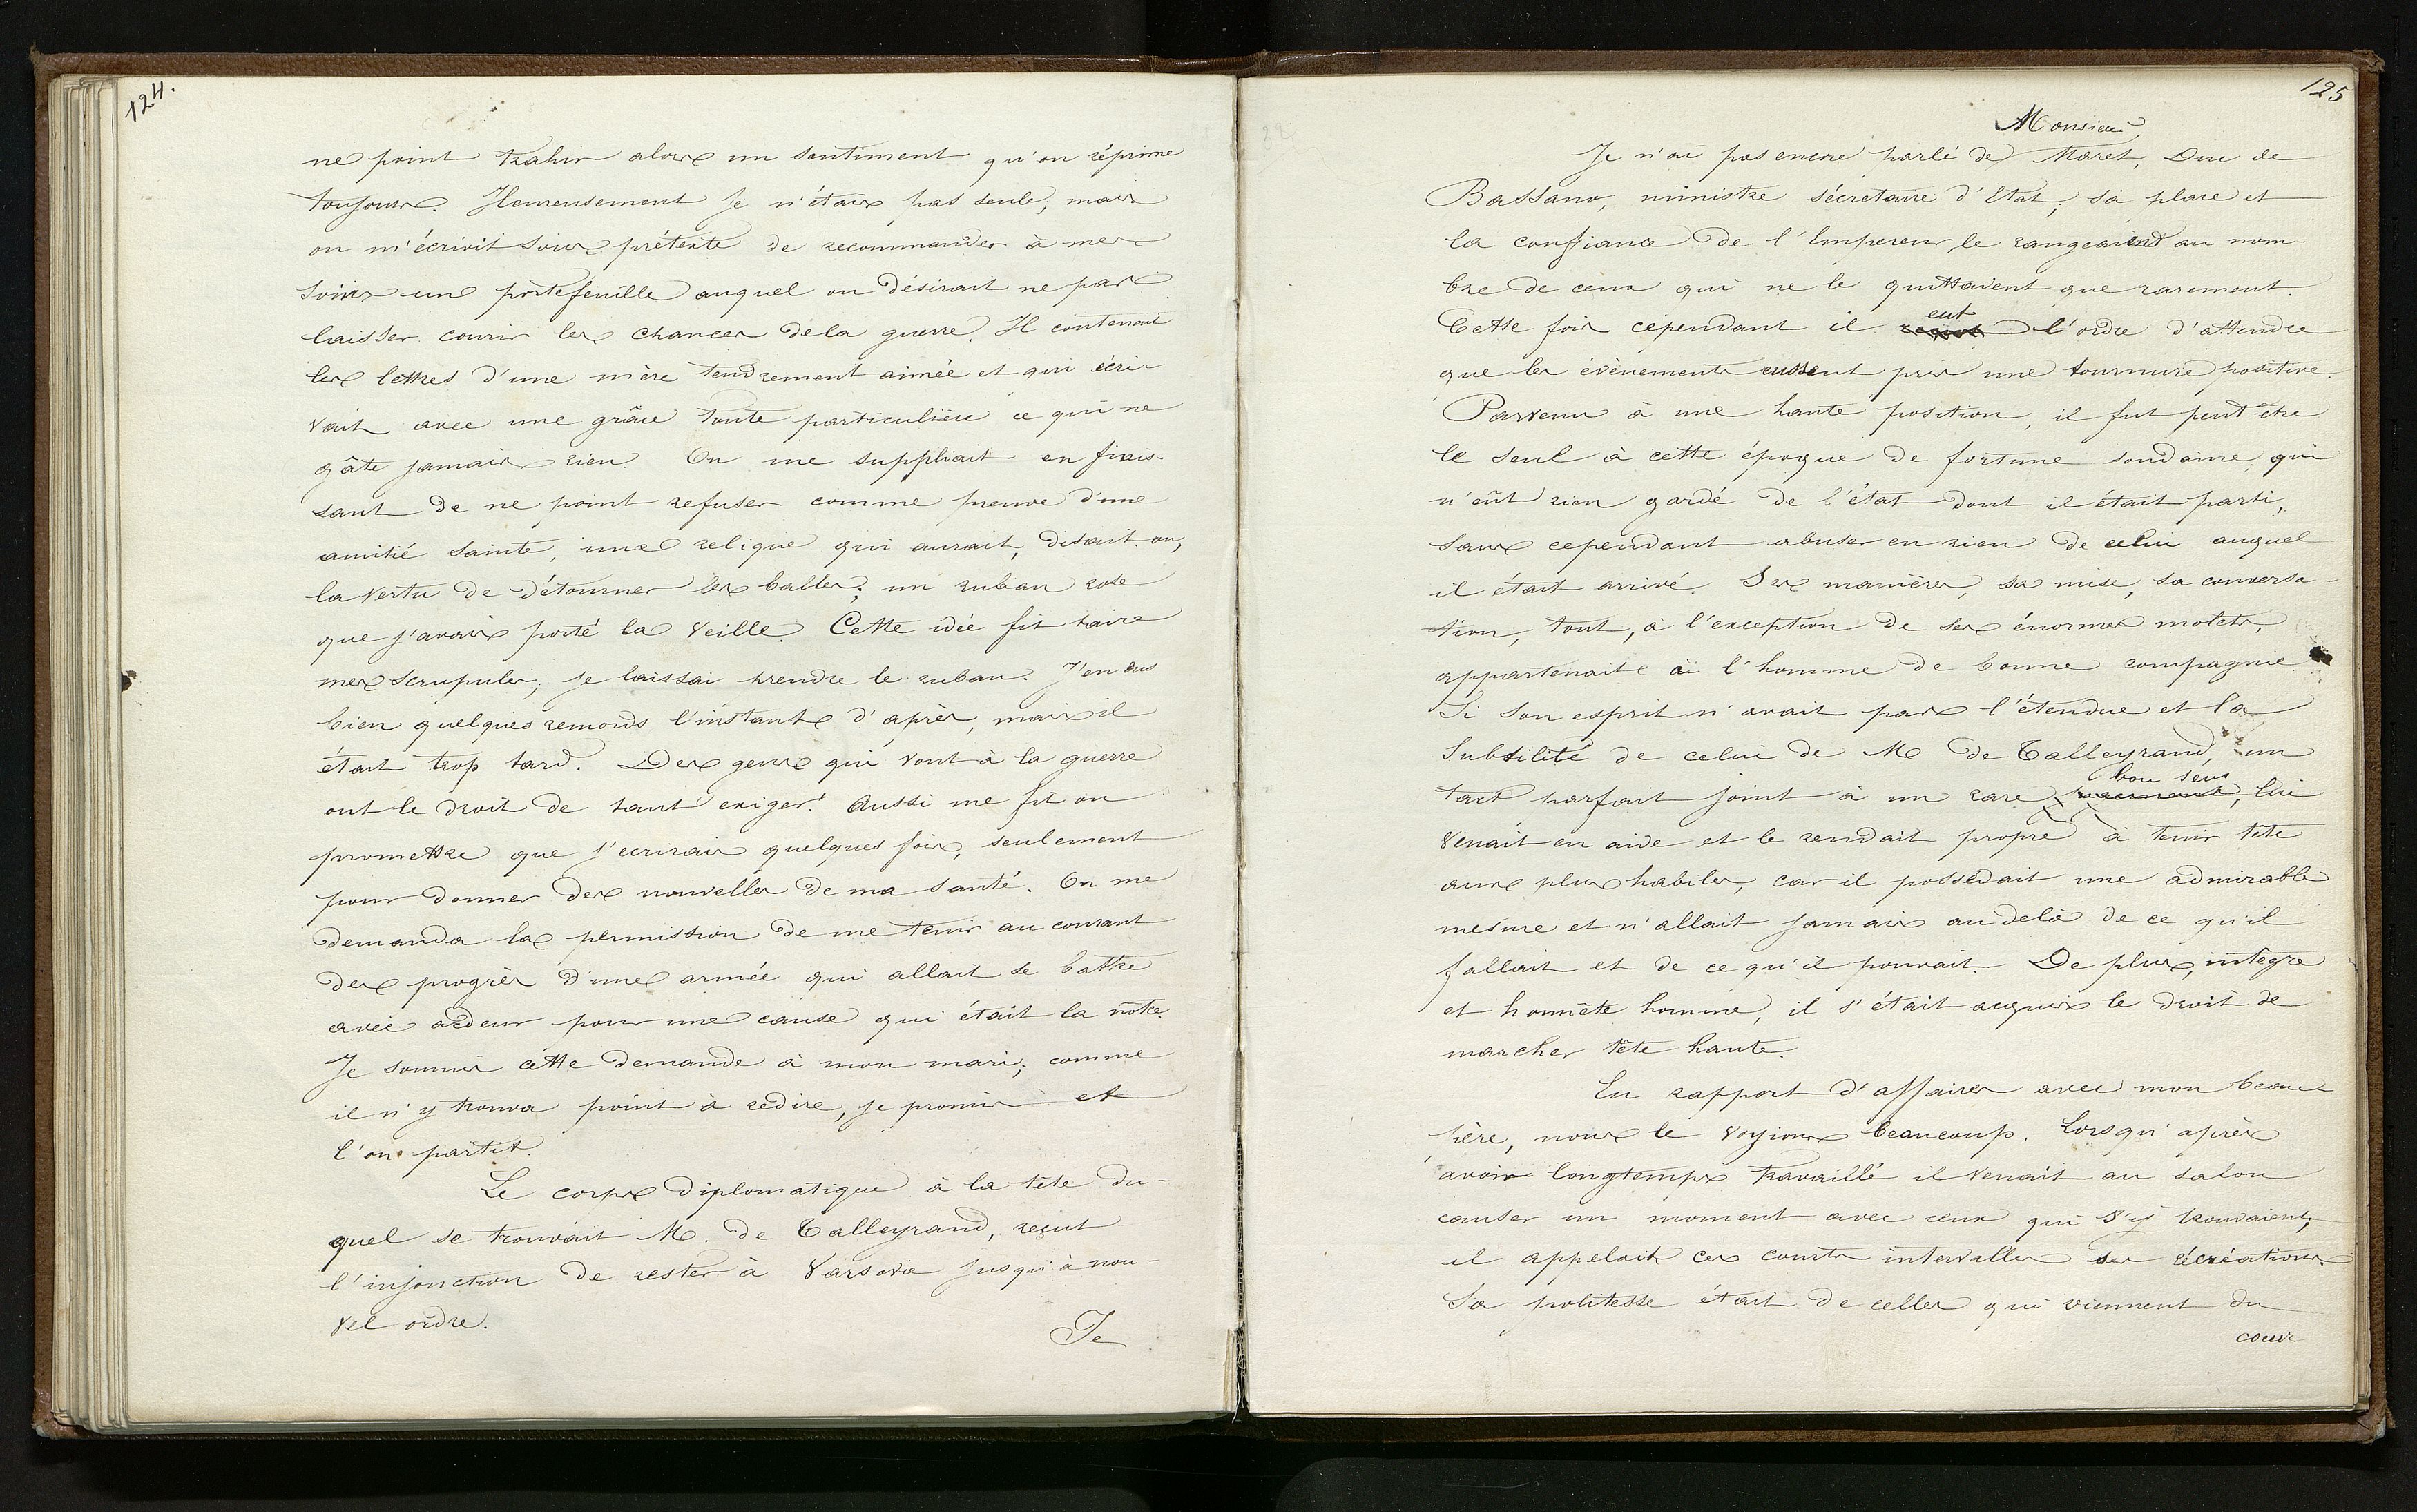 124.
ne point trahir alors un sentiment qu'on réprime
toujours. Heureusement je n'étais pas seule, mais
on m'écrivit sous prétexte de recommander à mes
soins une portefeuille auquel on désirait ne pas
laisser courir les chances de la guerre. Il contenait
les lettres d'une mère tendrement aimée et qui écri-
vait avec une grâce toute particulière ce qui ne
gâte jamais rien. On me suppliait en finis-
sant de ne point refuser comme preuve d'une
amitié sainte, une relique qui aurait, disait on,
la vertu de détourner les balles; un ruban rose
que j'avais porté la veille. Cette idée fit taire
mes scrupules; je laissai prendre le ruban. J'en eus
bien quelques remords l'instant d'après, mais il
était trop tard. Des gens qui vont à la guerre
ont le droit de tant exiger! Aussi me fit on
promettre que j'ecrirais quelques fois, seulement
pour donner des nouvelles de ma santé. On me
demanda la permission de me tenir au courant
des progrès d'une armée qui allait se battre
avec ardeur pour une cause qui était la nôtre.
Je soumis cette demande à mon mari; comme
il n'y trouva point à redire, je promis et
l'on partit.
Le corps diplomatique à la tête du-
quel se trouvait M. de Talleyrand, reçut
l'injonction de rester à Varsovie jusqu'à nou-
vel ordre.
Je
125
Monsieur
Je n'ai pas encore parlé de Maret, Duc de
Bassano, ministre sécretaire d'Etat; sa place et
la confiance de l'Empereur, le rangeaient au nom-
bre de ceux qui ne le quittaient que rarement.
eut
Cette fois cépendant il reçut l'ordre d'attendre
que les évènements eussent pris une tournure positive.
Parvenu à une haute position, il fut peut-être
le seul à cette époque de fortune soudaine, qui
n'eût rien gardé de l'état dont il était parti,
sans cependant abuser en rien de celui auquel
il était arrivé. Ses manières, sa mise, sa conversa-
tion, tout, à l'exception de ses énormes molets,
appartenait à l'homme de bonne compagnie
Si son esprit n'avait pas l'étendue et la
subtilité de celui de M de Talleyrand, un
bon sens
tact parfait joint à un rare, lui
venait en aide et le rendait propre à tenir tête
aux plus habiles, car il possédait une admirable
mesure et n'allait jamais au delà de ce qu'il
fallait et de ce qu'il pouvait. De plus, intègre
et honnête homme, il s'était acquis le droit de
marcher tête haute.
En rapport d'affaires avec mon beau-
père, nous le voyions beaucoup. Lorsqu'après
avoir longtemps travaillé il venait au salon
causer un moment avec ceux qui s'y trouvaient,
il appelait ces courts intervalles ses récréations.
Sa politesse était de celles qui viennent du
cœur